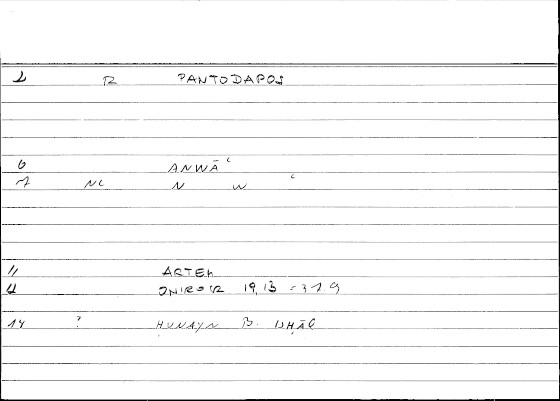 R PANTODAPOS
6 ANWĀʿ
7 NC N W ʿ
11 ARTEM
ONIROCR 19,13 = 37.9
14 ? ḤUNAYN B. ISḤĀQ